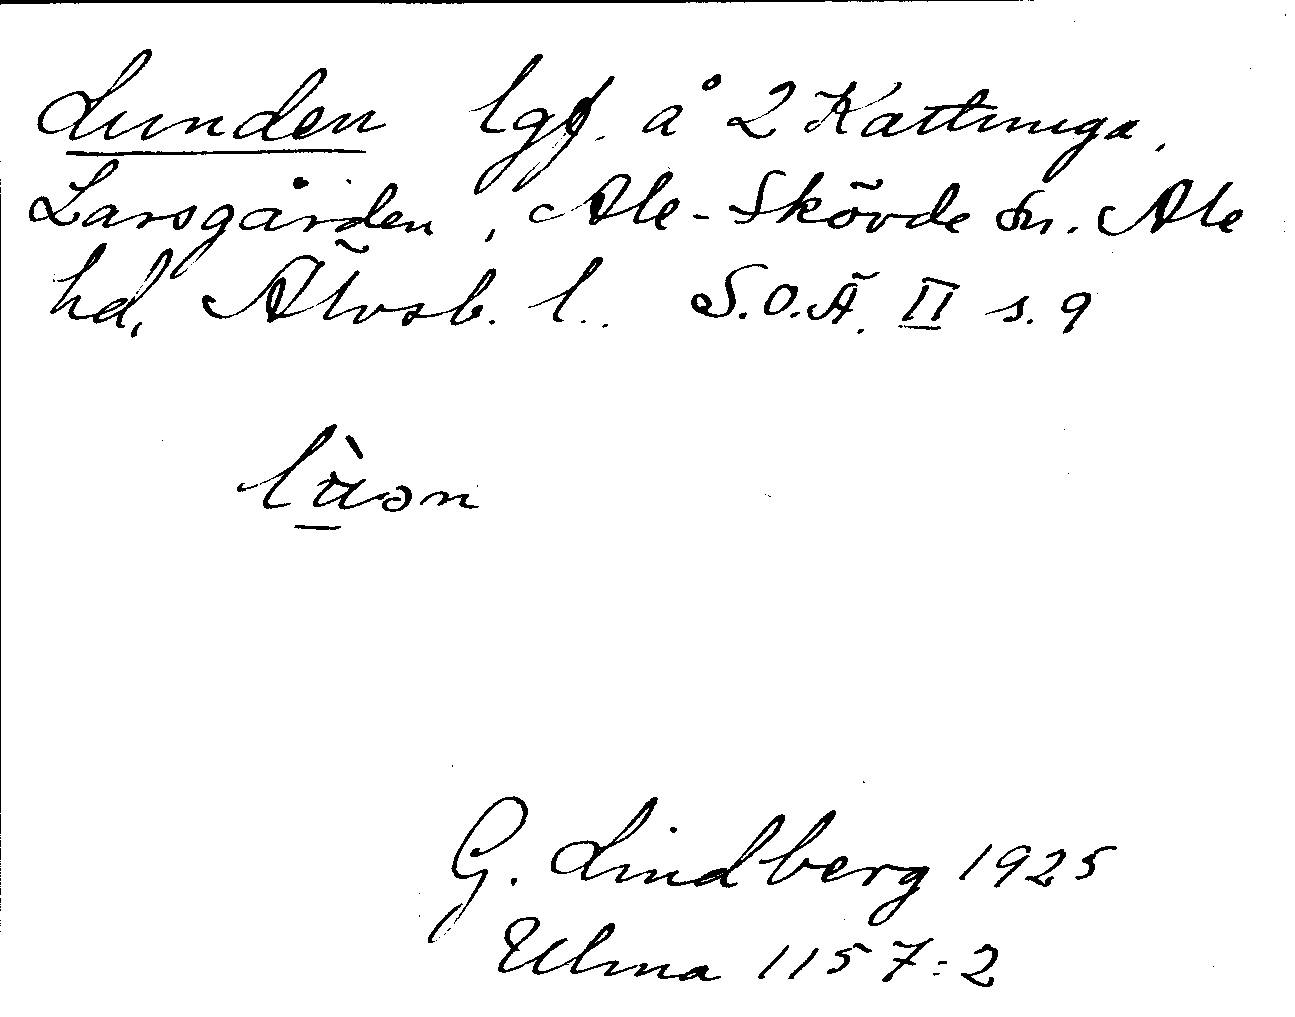 Lunden lgf. å 2 Kattunga,
Larsgården, Ale-Skövde sn. Ale
hd, Älvsb. l. S.O.Ä. II s. 9
G. Lindberg 1925
Ulma 1157:2